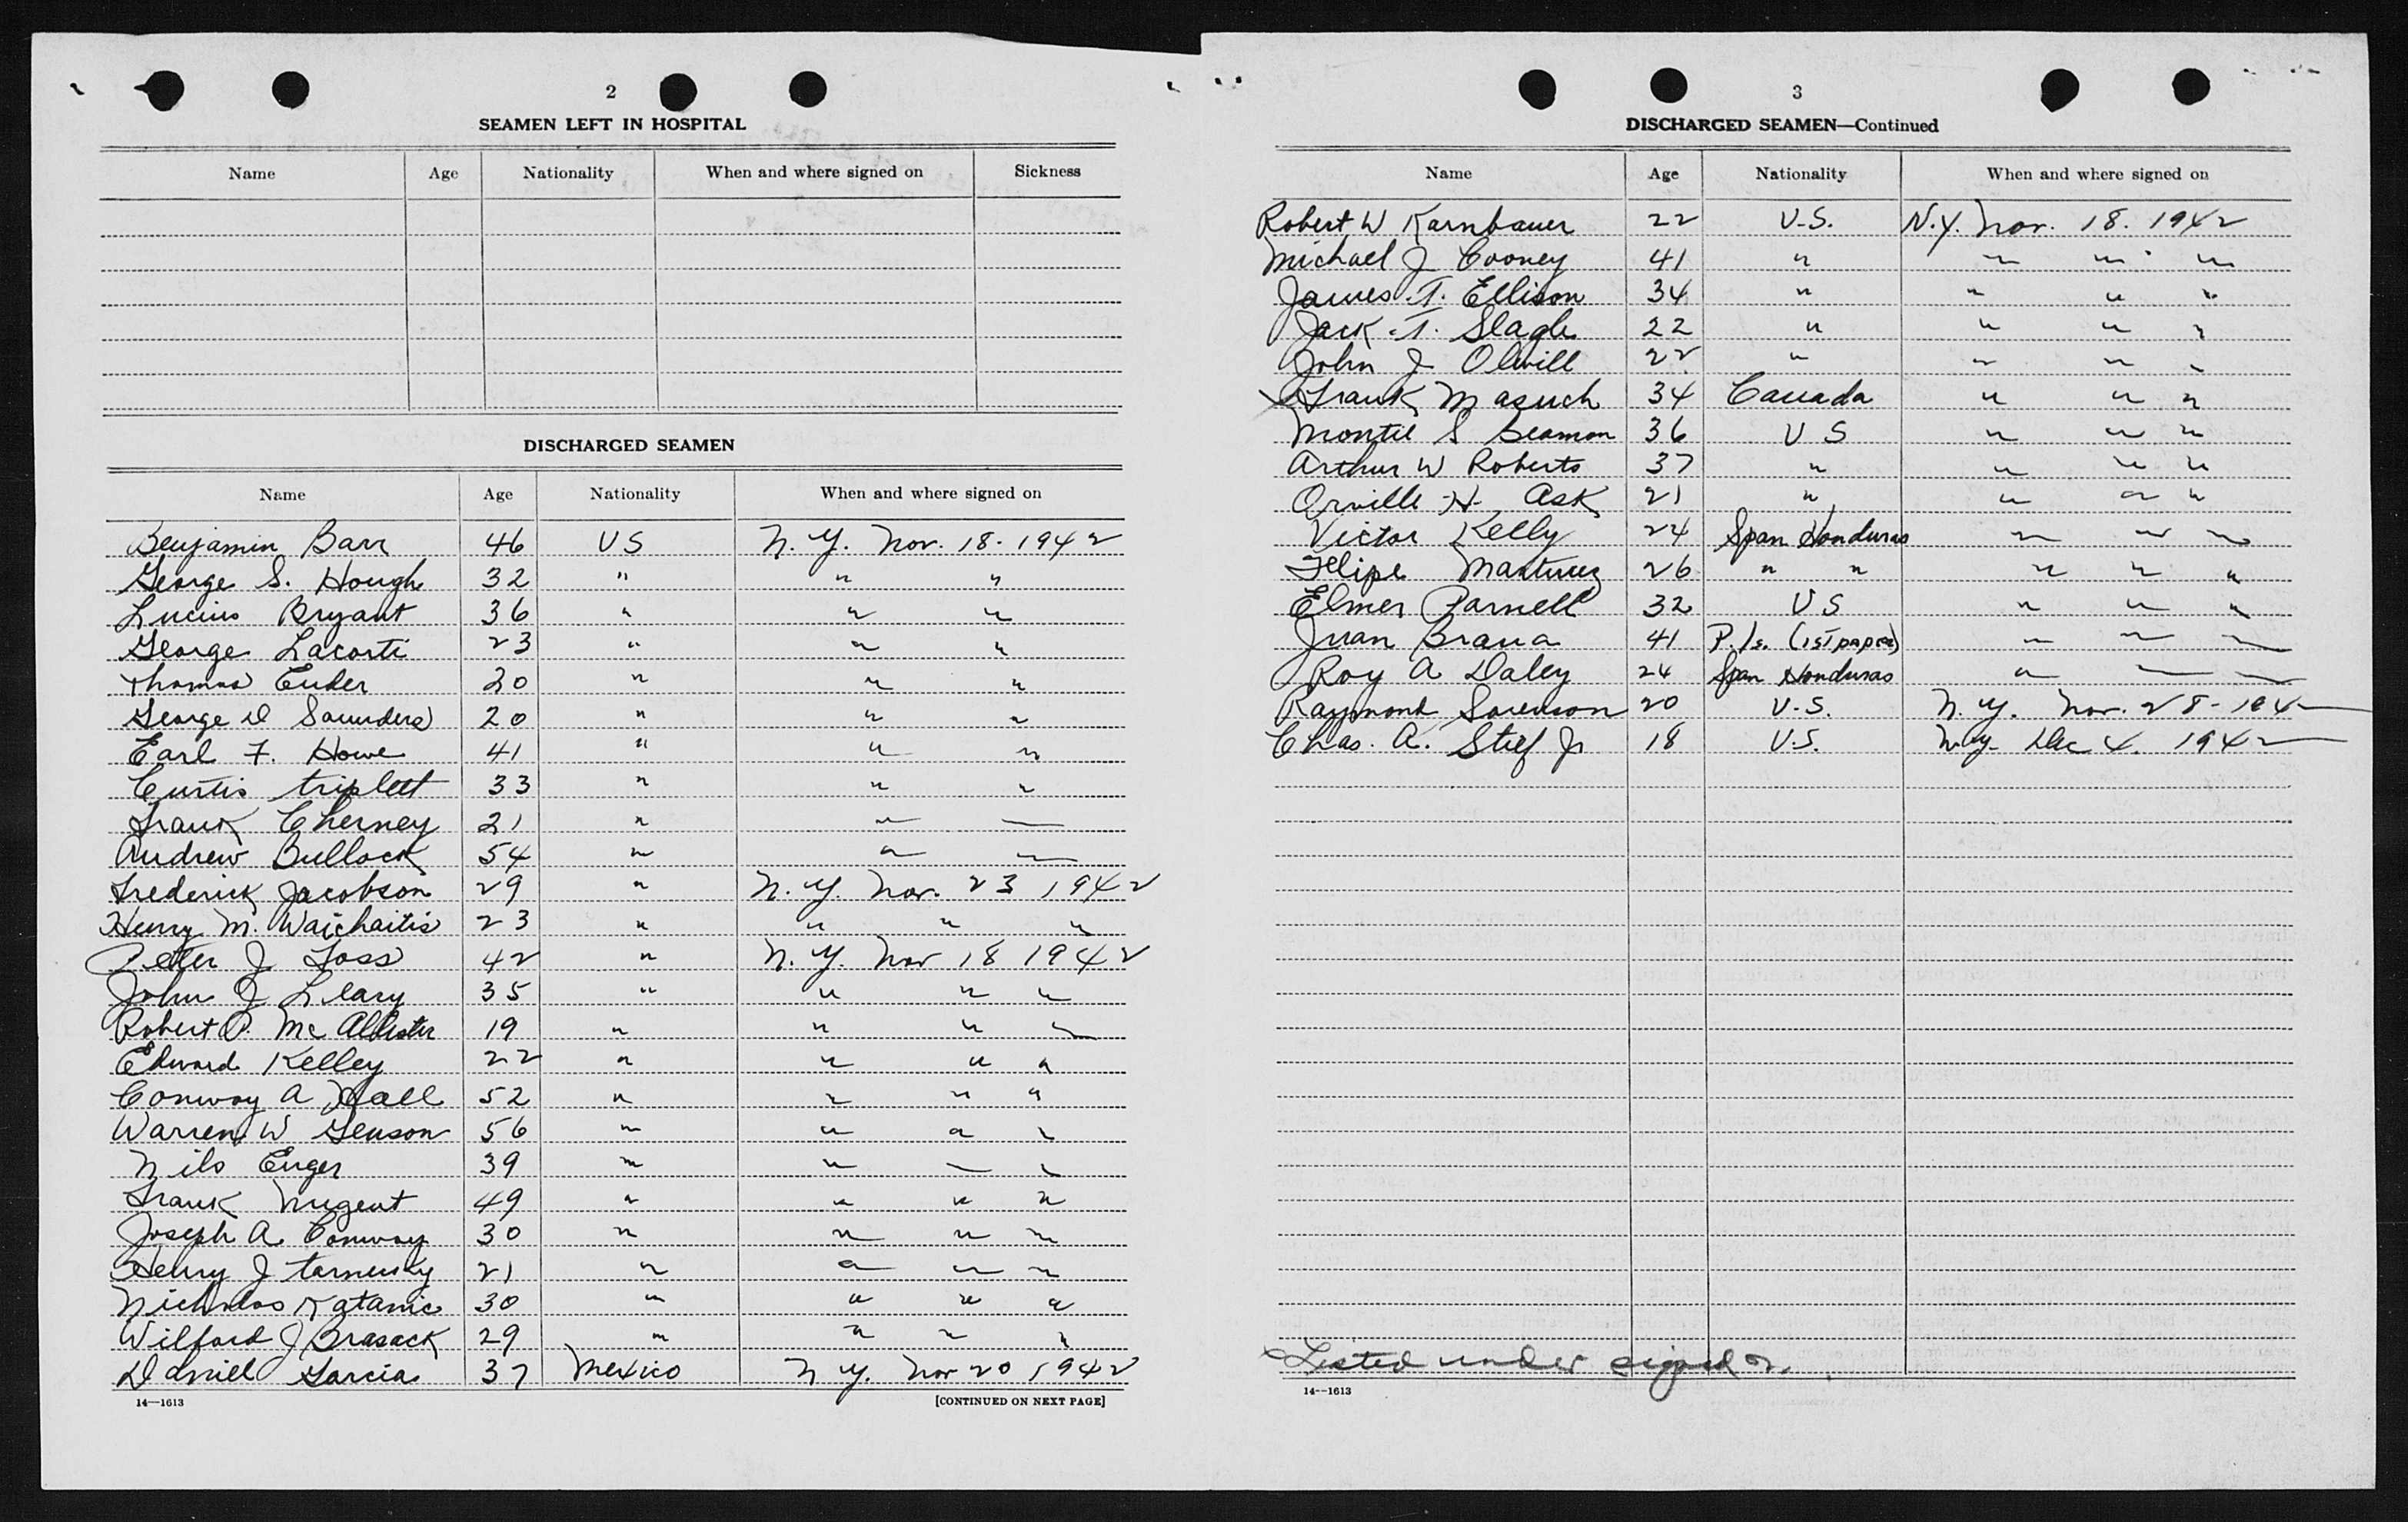 2
SEAMEN LEFT IN HOSPITAL
Name Age Nationality When and where signed on Sickness
DISCHARGED SEAMEN
Name Age Nationality When and where signed on
Benjamin Barr 46 US N. Y. Nov. 18. 1942
George S. Hough 32 " " "
Lucius Bryant 36 " " "
George Lacorti 23 " " "
Thomas Euker 20 " " "
George D Saunders 20 " " "
Earl F. Howe 41 " " "
Curtis triplett 33 " " "
Frank Cherney 21 " " "
Andrew Bullock 54 " " "
Frederick Jacobson 29 " N. Y. Nov. 23 1942
Henry M. Waichaitis 23 " " " "
Peter J Foss 42 " N. Y. Nov 18 1942
John J Leary 35 " " " "
Robert P. McAllister 19 " " " "
Edward Kelley 22 " " " "
Conway A Hall 52 " " " "
Warren W Genson 56 " " " "
Nils Enger 39 " " " "
Frank Nugent 49 " " " "
Joseph A. Conway 30 " " " "
Henry J 21 " " " "
Nicholas Katanic 30 " " " "
Wilford J Brasack 29 " " " "
Daniel Garcia 37 Mexico N Y. Nov 20 1942
14—1613 [CONTINUED ON NEXT PAGE]
3
DISCHARGED SEAMEN—Continued
Name Age Nationality When and where signed on
Robert W Karnbauer 22 U.S. N.Y. Nov. 18. 1942
Michael J Cooney 41 " " " "
James T. Ellison 34 " " " "
Jack T. Slagle 22 " " " "
John J Olwill 22 " " " "
x Frank Masuch 34 Canada " " "
Montie S Seamon 36 U S " " "
Arthur W Roberts 37 " " " "
Orville H. Ask 21 " " " "
Victor Kelly 24 Span Honduras " " "
Felipe Martinez 26 " " " " "
Elmer Parnell 32 U S " " "
Juan Brana 41 P. Is. (1st paper) " " "
Roy A Daley 24 Span Honduras " " "
Raymond Sorenson 20 U.S. N. Y. Nov. 28- 194
Chas. A. Stief Jr 18 U.S. N. Y. Dec 4. 1942
x Listed under signed on.
14—1613